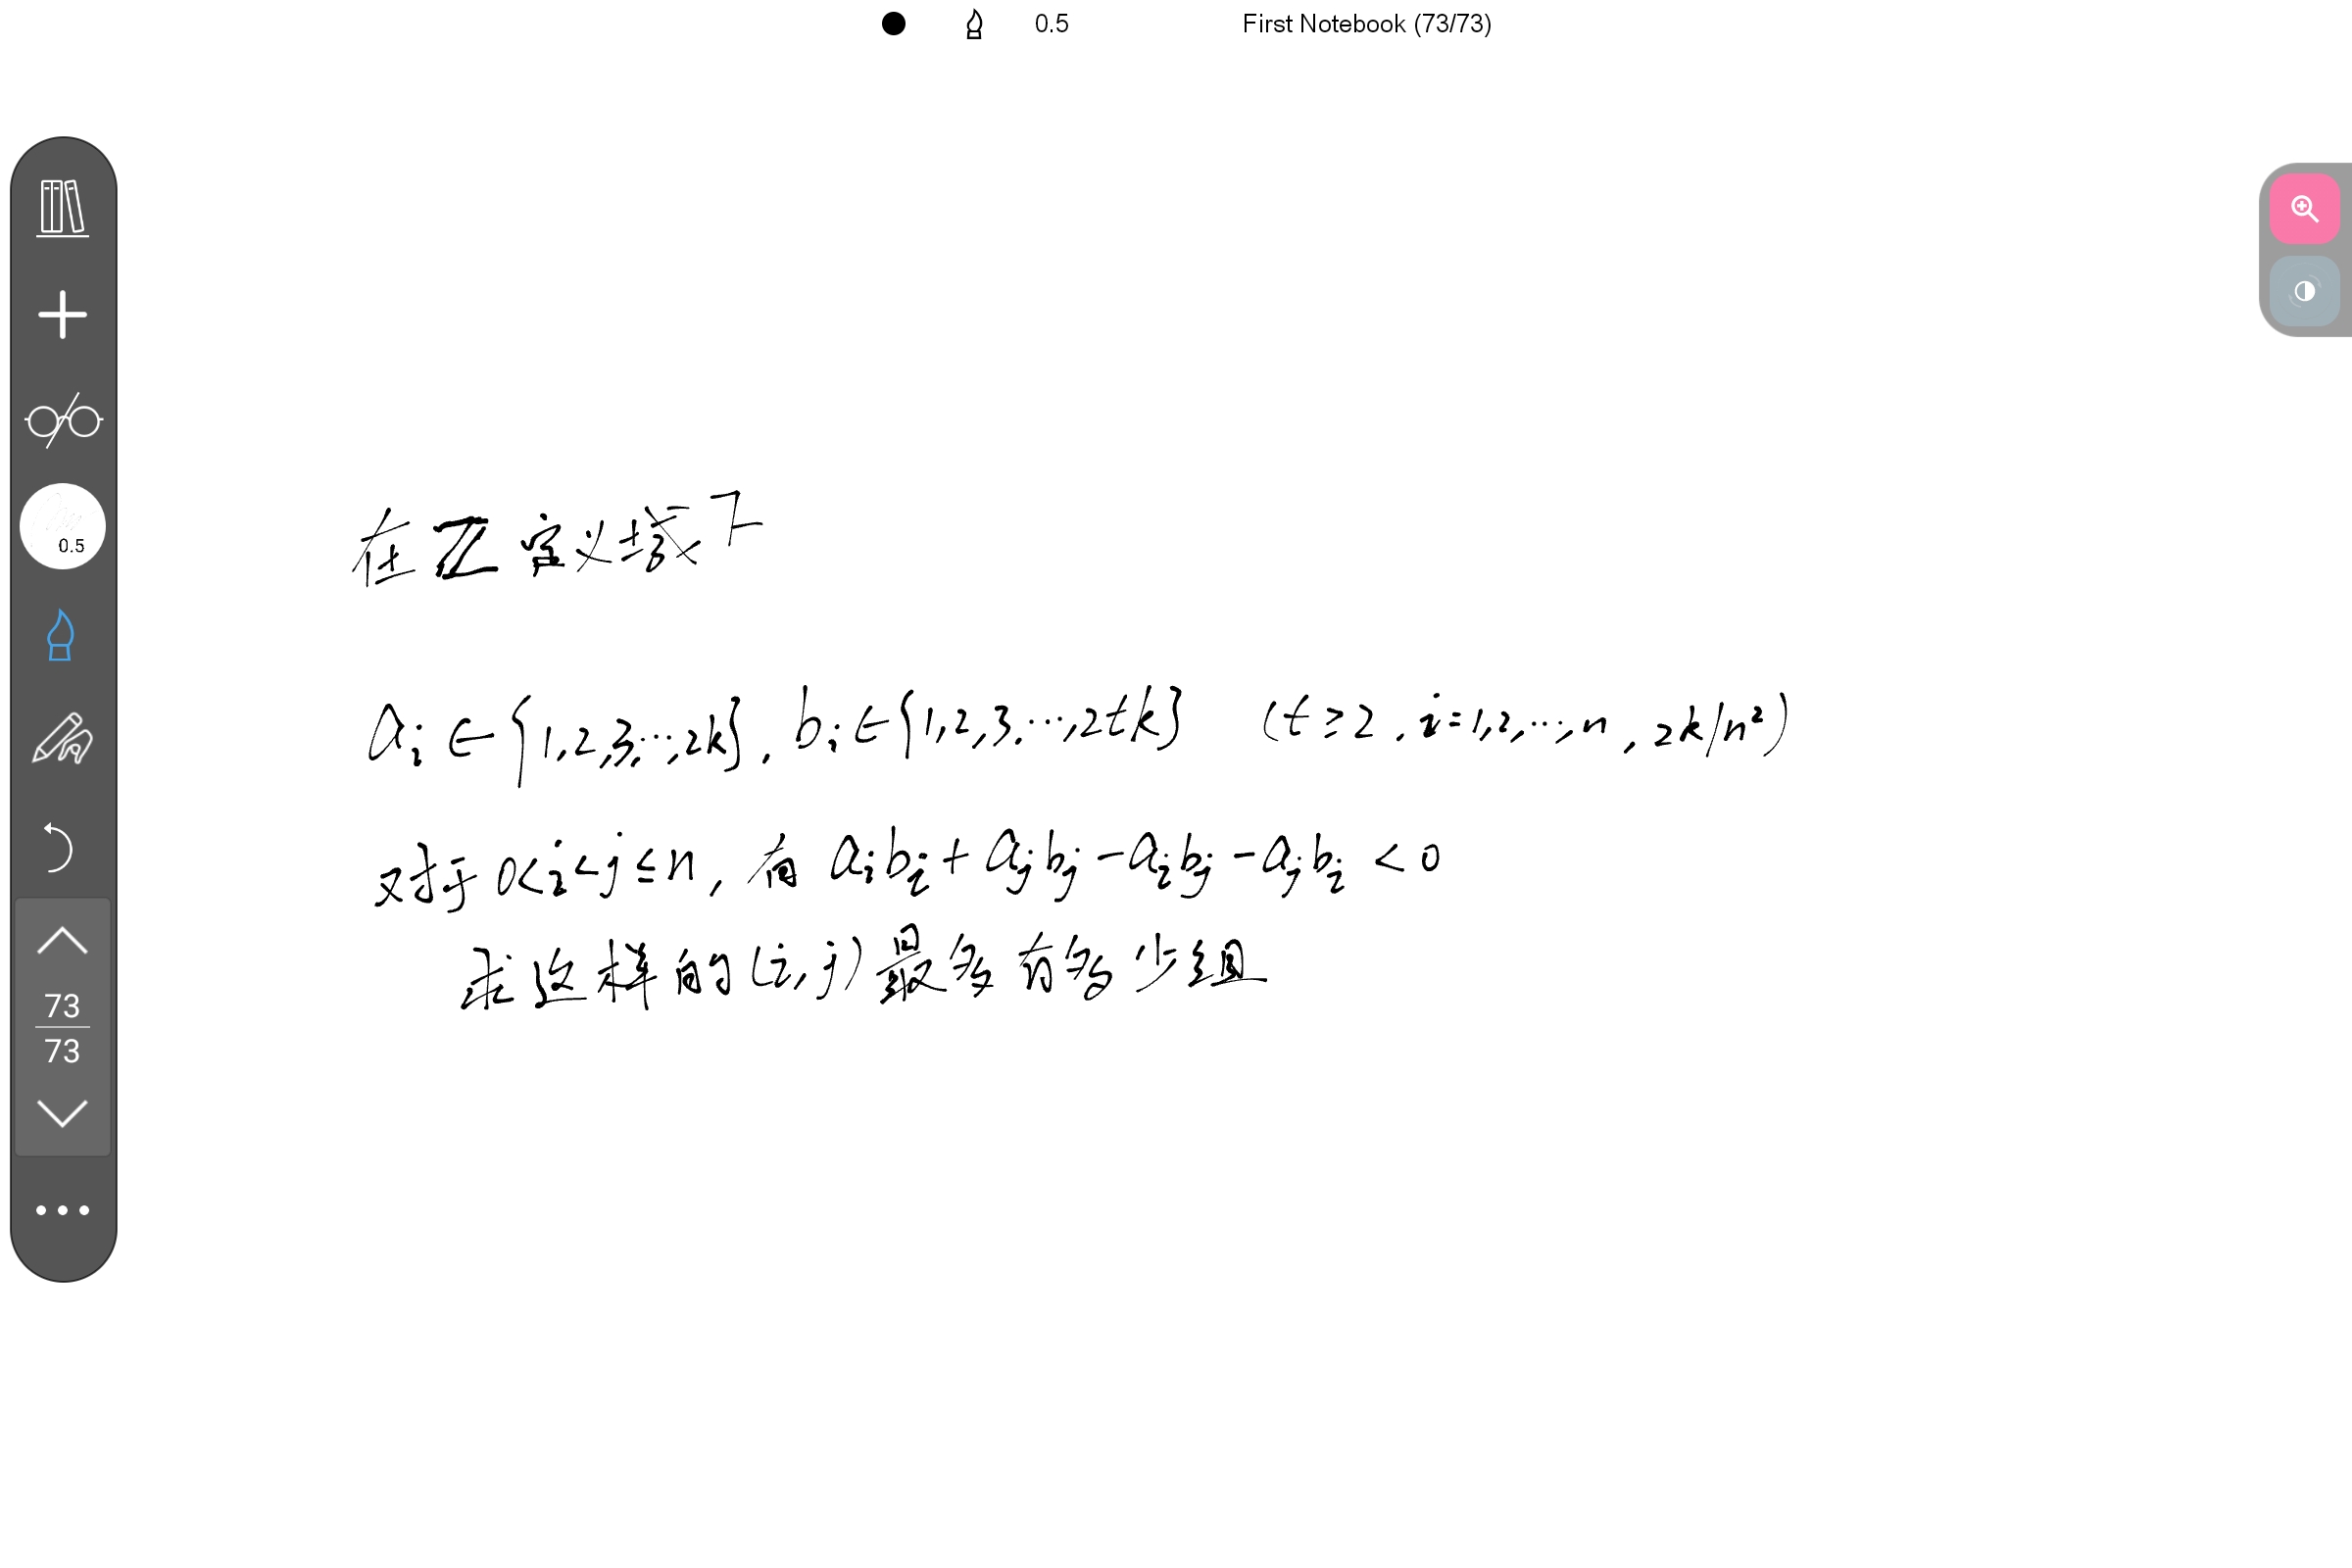 0.5 First Notebook (73/73)
0.5
73
73
在ℤ定义域下
aᵢ∈{1,2,3,…,2k}, bᵢ∈{1,2,3,…,2tk} (t≥2, i=1,2,…,n, 2k|n²)
对于0<i<j≤n, 有 aᵢbᵢ+aⱼbⱼ-aᵢbⱼ-aⱼbᵢ<0
求这样的(i,j)最多有多少组